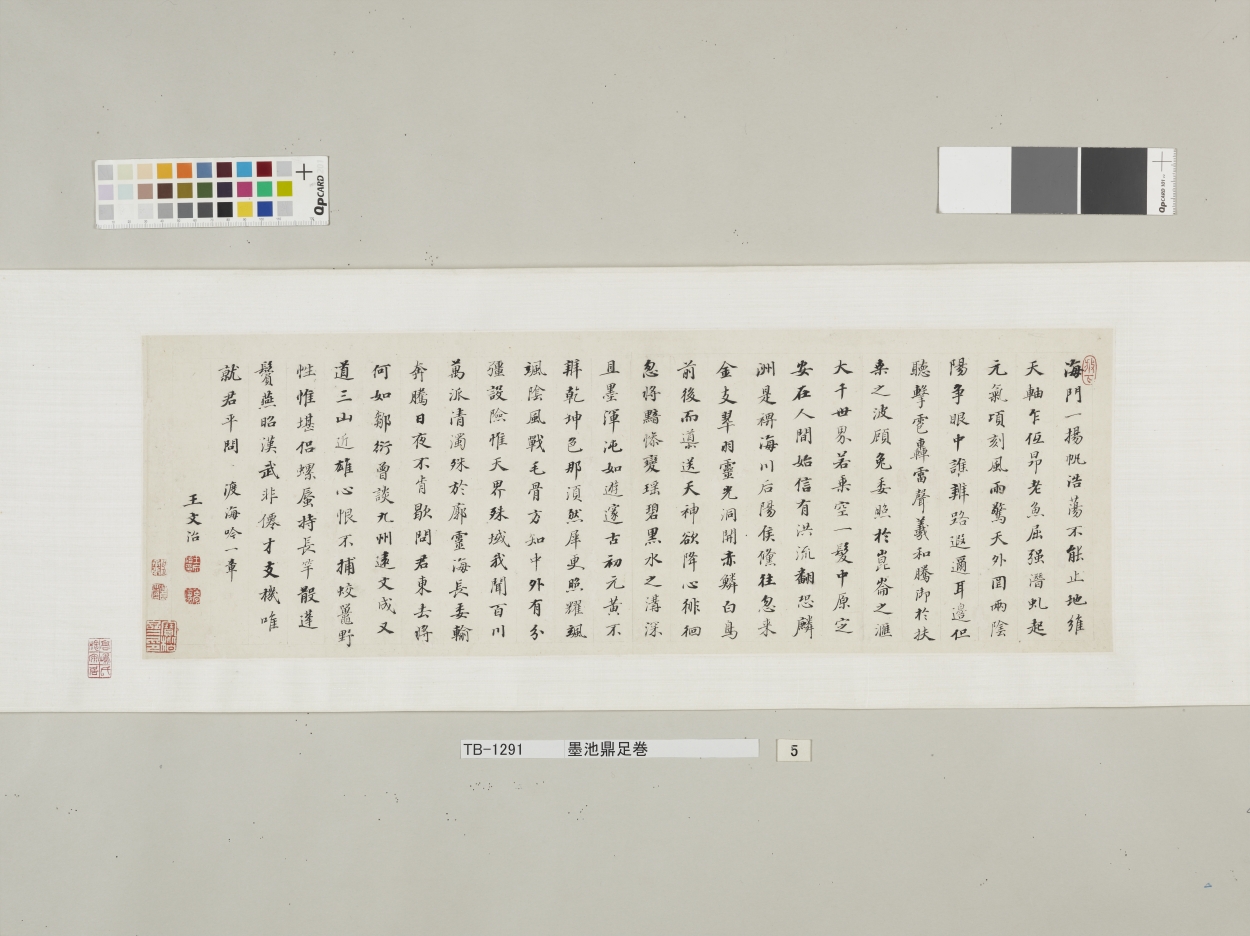 海門一揚帆浩蕩不能止地維
天軸乍低昂老魚屈强潛虬起
元氣頃刻風雨驚天外罔兩陰
陽爭眼中誰辨路遐邇耳邊但
聽擊雹轟雷聲羲和騰卽於扶
桑之波顧兔委照於崑崙之滙
大千世界若乘空一髮中原定
安在人間始信有洪流翻恐麟
洲是裨海川后陽侯儵往忽来
金支翠羽靈光洞開赤鱗白鳥
前後而導送天神欲降心徘徊
忽將黯慘變瑶碧黑水之溝深
且墨渾沌如遊邃古初元黄不
辨乾坤色那須然犀更照耀颯
颯陰風戰毛骨方知中外有分
疆設險惟天界殊域我聞百川
萬派清濁殊於廓靈海長委輸
奔騰日夜不肯歇問君東去將
何如鄒衍曽談九州遠文成又
道三山近雄心恨不捕蛟鼉野
性惟堪侣螺蜃持長竿散蓬
鬢燕昭漢武非僊才支機唯
就君平問 渡海吟一章
王文治
TB-1291 墨池鼎足巻
5
QPCARD
QPCARD